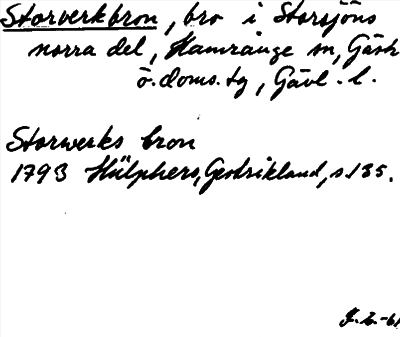 Storverkbron, bro i Storsjöns
norra del, Hamrånge sn, Gästr
ö. doms. tg, Gävl. l.
Storwerks bron
1793 Hülphers, Gestrikland, s. 135.